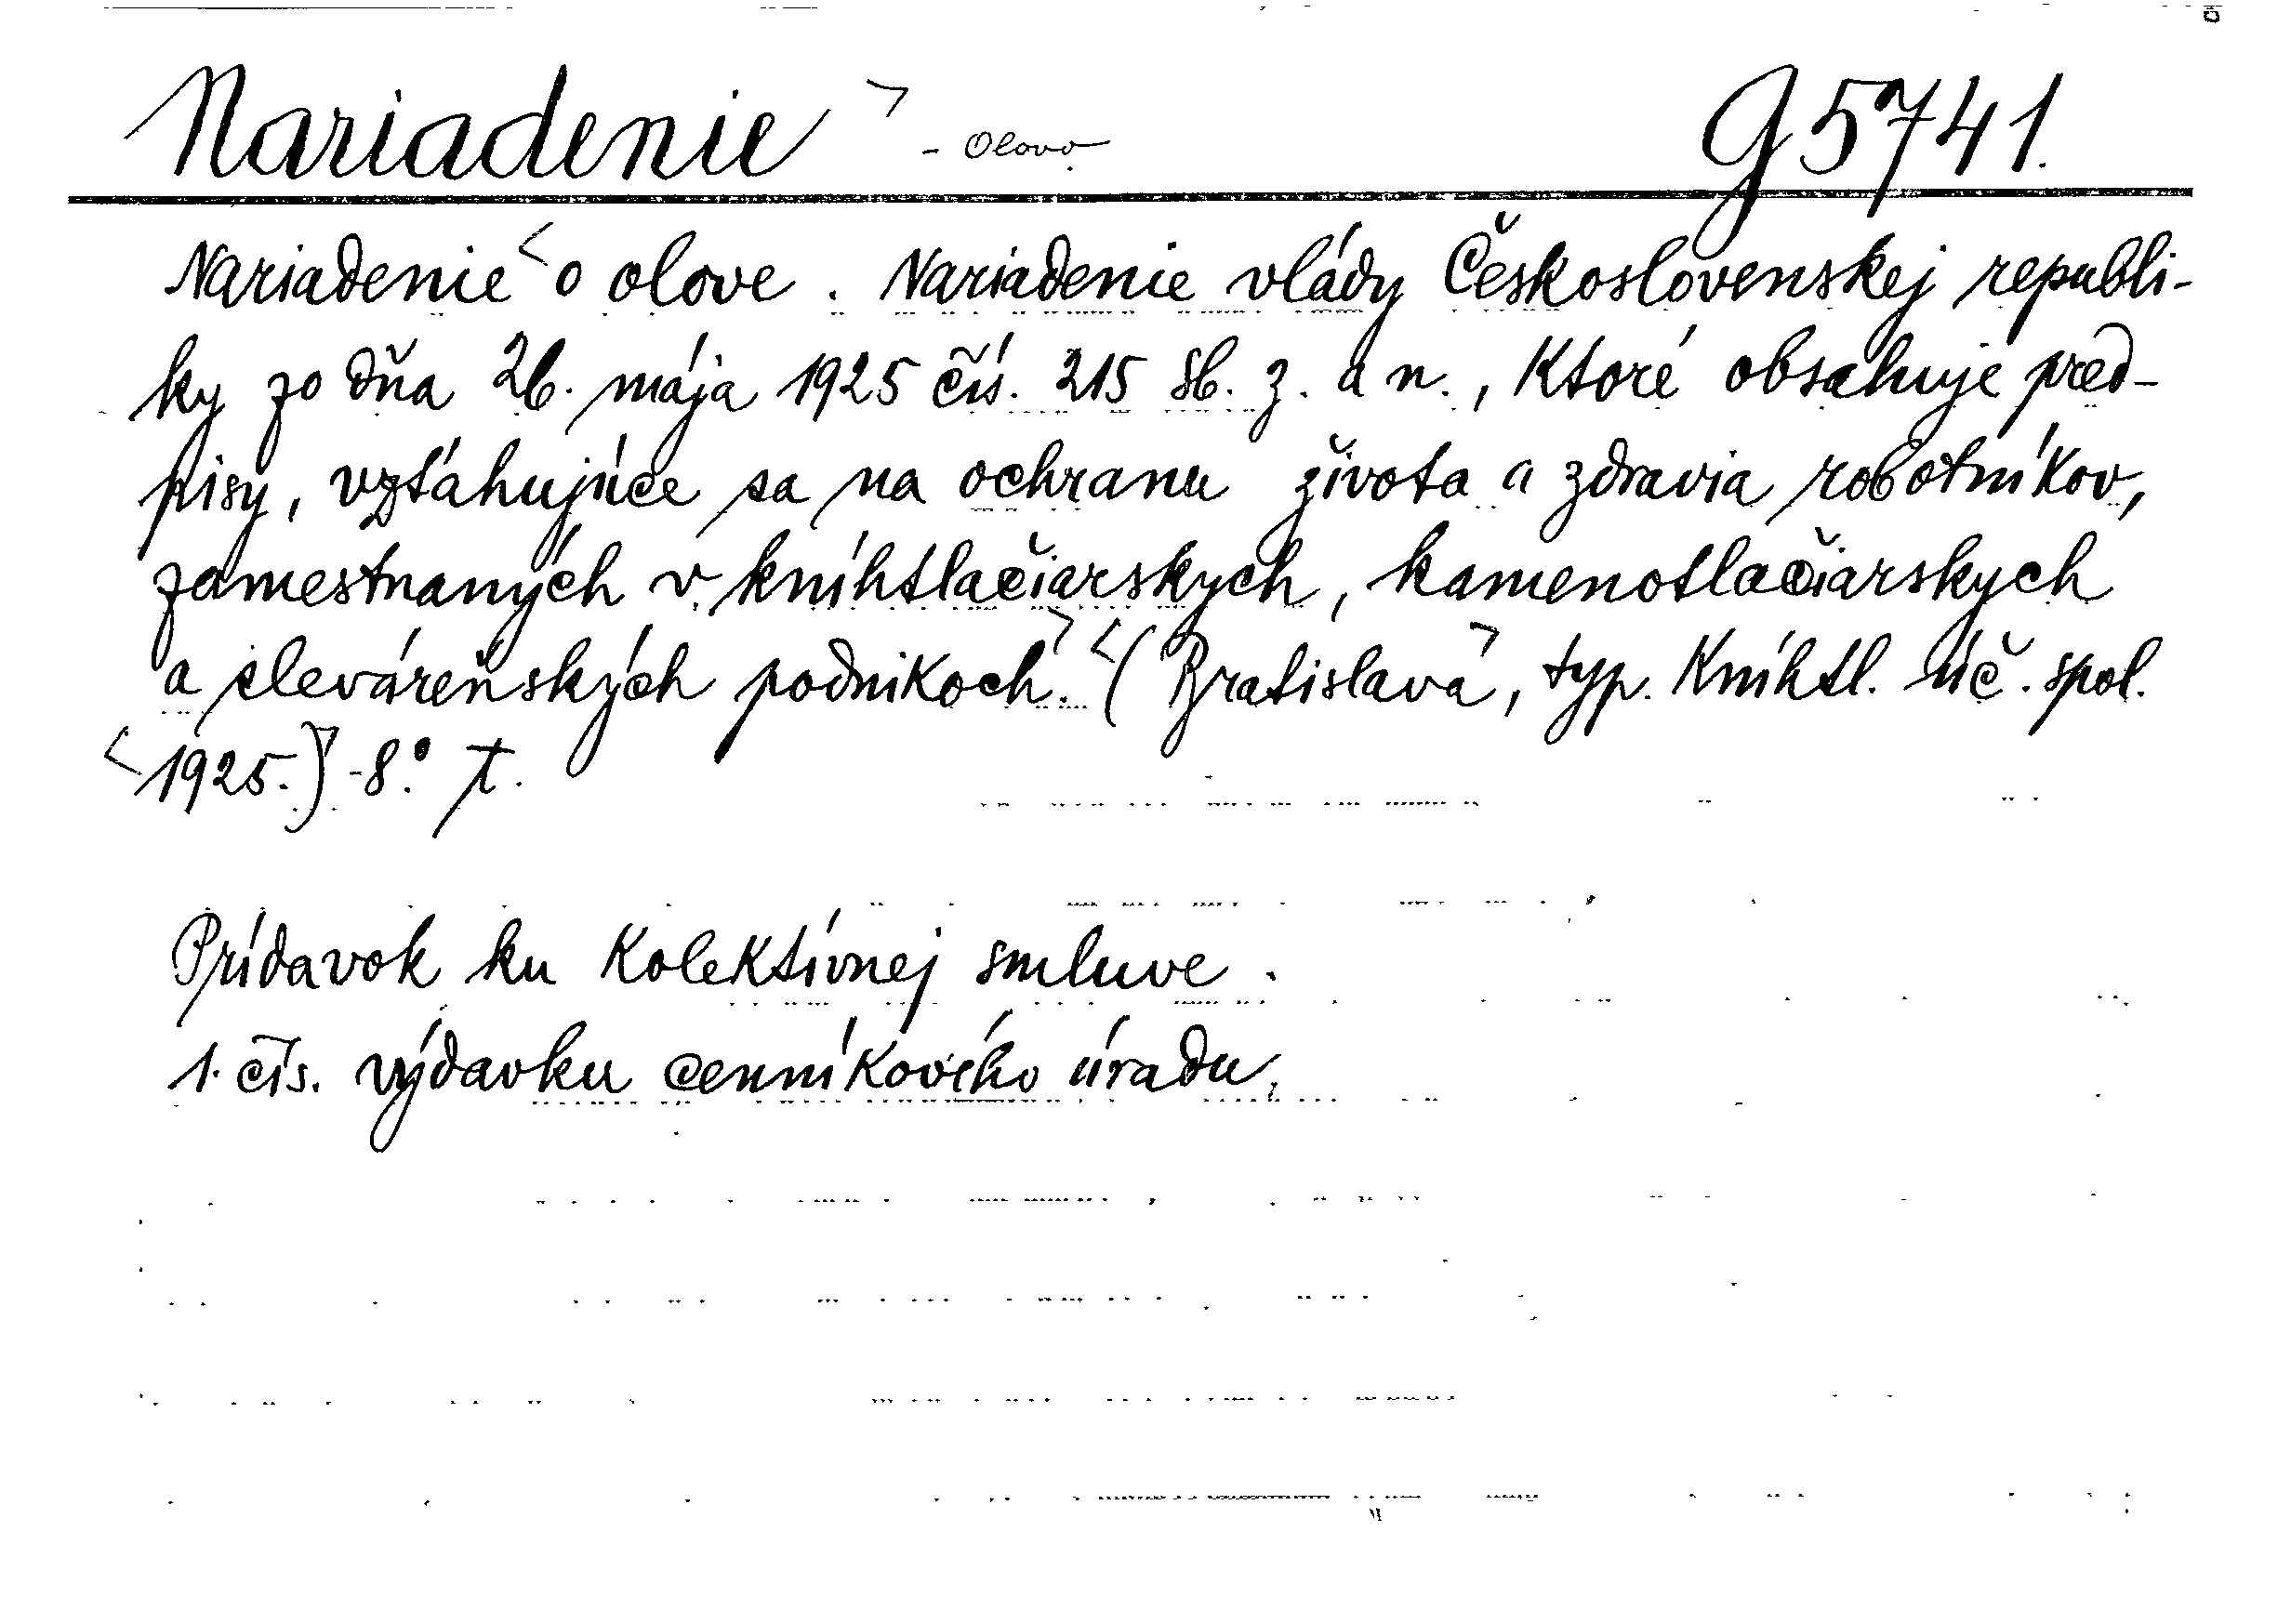 Nariadenie - Olovo G 5741.
Nariadenie o olove. Nariadenie vlády Československej republi-
ky zo dňa 26. mája 1925 čís. 215 Sb. z. a n., ktoré obsahuje pred-
pisy, vzťahujúce sa na ochranu života a zdravia robotníkov,
zamestnaných v kníhtlačiarskych, kamenotlačiarskych
a sleváreňských podnikoch. (Bratislava, typ. Kníhtl. úč. spol.
1925.) - 8°. T.
Prídavok ku kolektívnej smluve.
1. čís. výdavku cenníkového úradu.